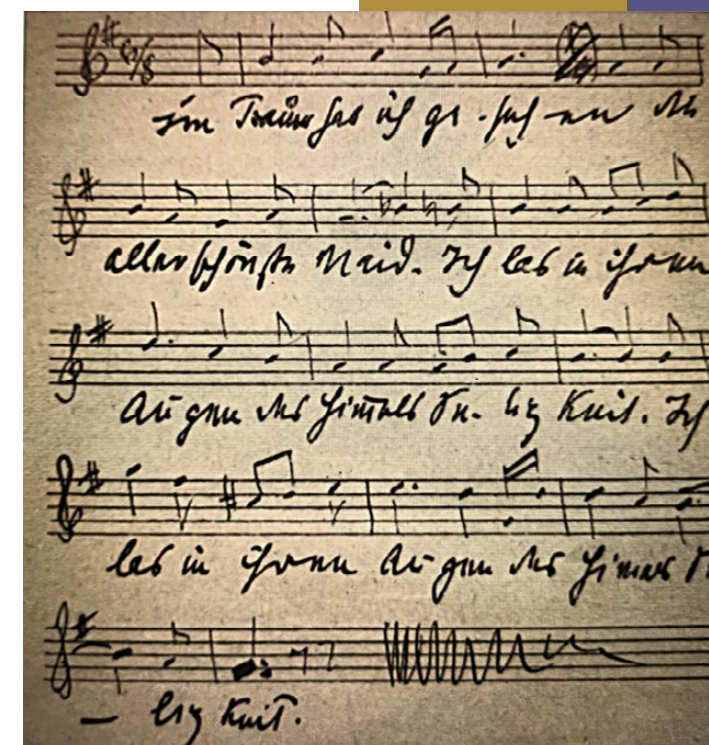 6/8
im Traum hab ich ge-seh-en die
allerschönste Maid. Ich las in ihren
Augen des Himels Se-ligkeit. Ich
las in ihren Augen des Himels
— ligkeit.